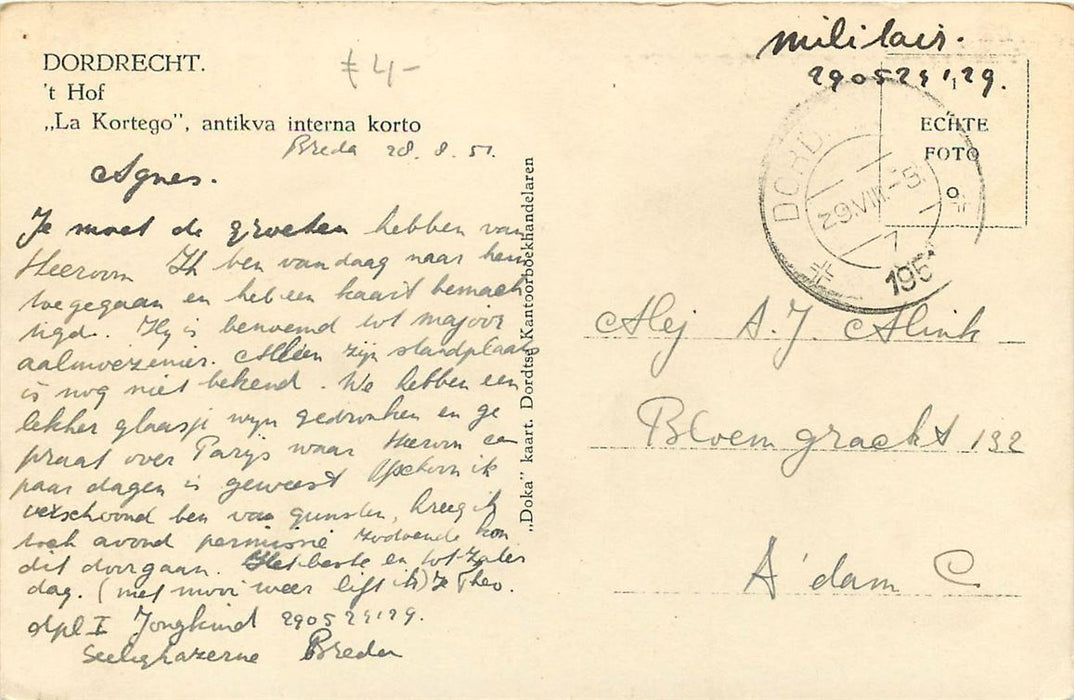 DORDRECHT.
't Hof
„La Kortego”, antikva interna korto
£ 4-
Breda 28.8.51.
Agnes.
Je moet de groeten hebben van
Heeroom Ik ben vandaag naar hem
toegegaan en heb een kaart bemach
tigd. Hy is benoemd tot majoor
aalmoezenier. Alléén zijn standplaats
is nog niet bekend. We hebben een
lekker glaasje wyn gedronken en ge
praat over Parys waar Heeroom een
paar dagen is geweest ik
verschoond ben van gunsten, kreeg ik
toch avond permissie zodoende kon
dit doorgaan. Het beste en tot Zater
dag. (met mooi weer lift ik) Je Theo.
dpl I Jongkind 290524129.
Seeligkazerne Breda
„Doka” kaart. Dordtse Kantoorboekhandelaren
militair.
290524129.
ECHTE
FOTO
DORD
29.VIII.-5
7
195
Mej A.J. Alink
Bloemgracht 132
A'dam C